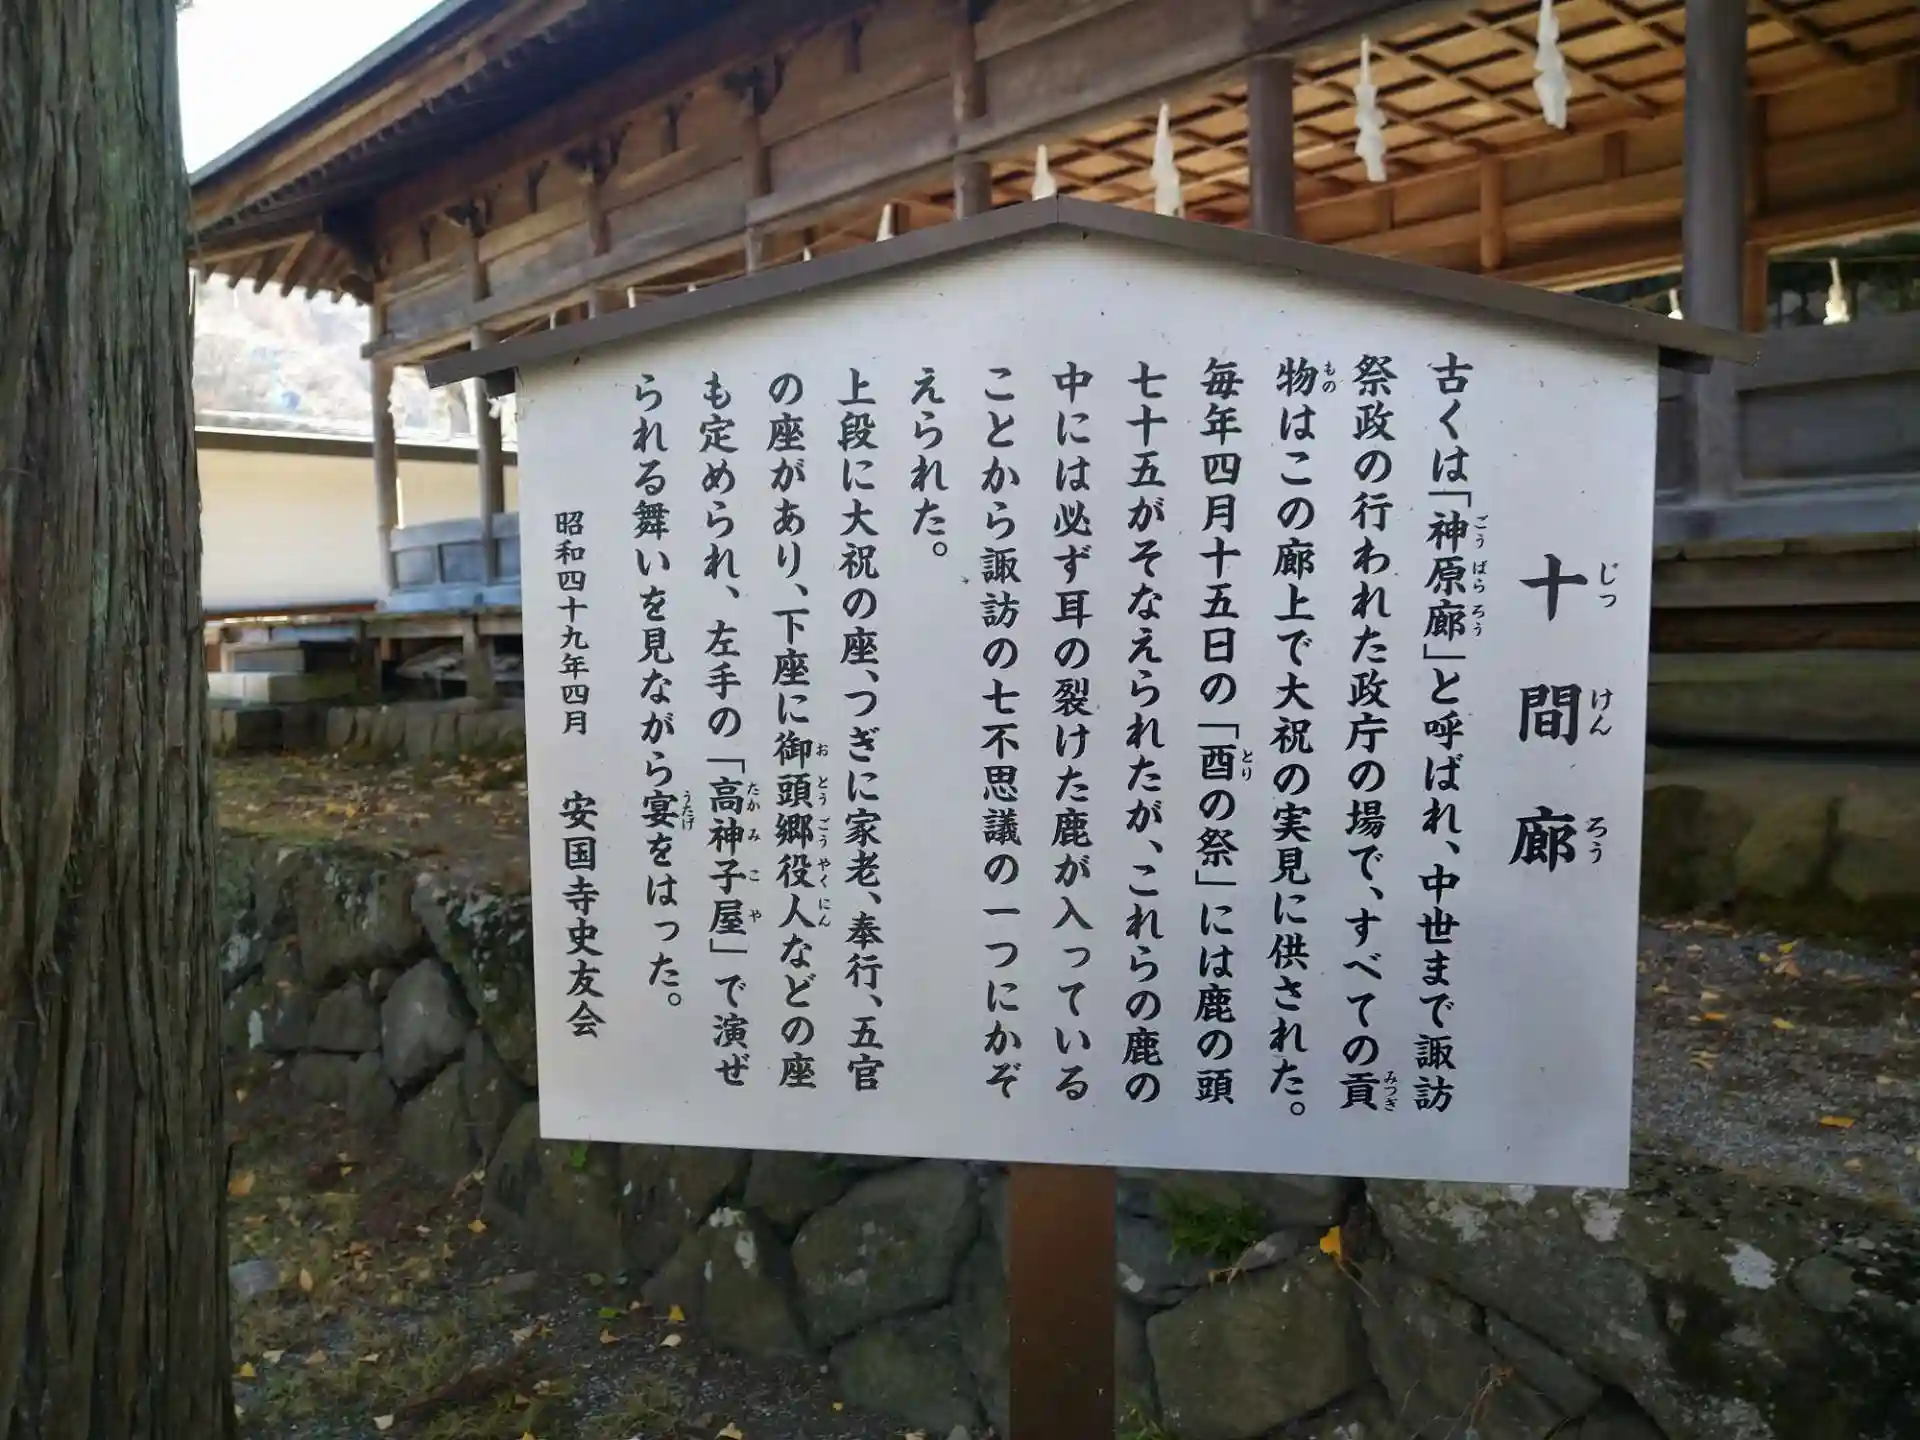 十間廊
古くは「神原廊」と呼ばれ、中世まで諏訪
祭政の行われた政庁の場で、すべての貢
物はこの廊上で大祝の実見に供された。
毎年四月十五日の「酉の祭」には鹿の頭
七十五がそなえられたが、これらの鹿の
中には必ず耳の裂けた鹿が入っている
ことから諏訪の七不思議の一つにかぞ
えられた。
上段に大祝の座、つぎに家老、奉行、五官
の座があり、下座に御頭郷役人などの座
も定められ、左手の「高神子屋」で演ぜ
られる舞いを見ながら宴をはった。
昭和四十九年四月 安国寺史友会